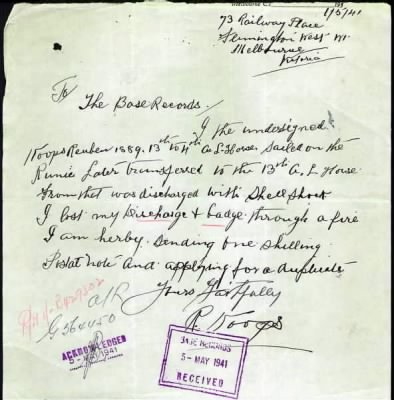 1/5/41
73 Railway Place
Flemington West W1
Melbourne
Victoria
To The Base Records.
I the undersigned
Koops Reuben 1889. 13th to 4th A. L. Horse sailed on the
Runic Later transfered to the 13th A. L Horse
From that was discharged with Shell Shock
I lost my discharge & badge through a fire
I am herby sending one shilling
Postal note and applying for a duplicate
Yours Faithfully
R. Koops
ACKNOWLEDGED
5-MAY 1941
BASE RECORDS
5-MAY 1941
RECEIVED